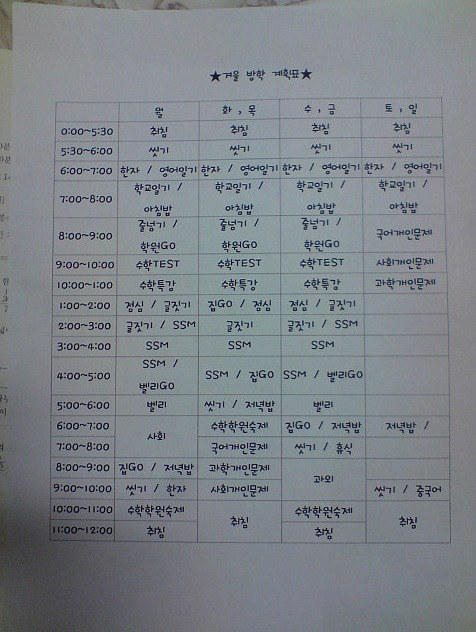 ★겨울 방학 계획표★
월 화, 목 수, 금 토, 일
0:00~5:30 취침 취침 취침 취침
5:30~6:00 씻기 씻기 씻기 씻기
6:00~7:00 한자 / 영어일기 한자 / 영어일기 한자 / 영어일기 한자 / 영어일기
학교일기 / 학교일기 / 학교일기 / 학교일기 /
7:00~8:00
아침밥 아침밥 아침밥 아침밥
줄넘기 / 줄넘기 / 줄넘기 /
8:00~9:00 국어개인문제
학원GO 학원GO 학원GO
9:00~10:00 수학TEST 수학TEST 수학TEST 사회개인문제
10:00~1:00 수학특강 수학특강 수학특강 과학개인문제
1:00~2:00 점심 / 글짓기 집GO / 점심 점심 / 글짓기
2:00~3:00 글짓기 / SSM 글짓기 글짓기 / SSM
3:00~4:00 SSM SSM SSM
SSM /
4:00~5:00 SSM / 집GO SSM / 벨리GO
벨리GO
5:00~6:00 벨리 씻기 / 저녁밥 벨리
6:00~7:00 수학학원숙제 집GO / 저녁밥 저녁밥 /
사회
7:00~8:00 국어개인문제 씻기 / 휴식
8:00~9:00 집GO / 저녁밥 과학개인문제
과외
9:00~10:00 씻기 / 한자 사회개인문제 씻기 / 중국어
10:00~11:00 수학학원숙제 수학학원숙제
취침 취침
11:00~12:00 취침 취침